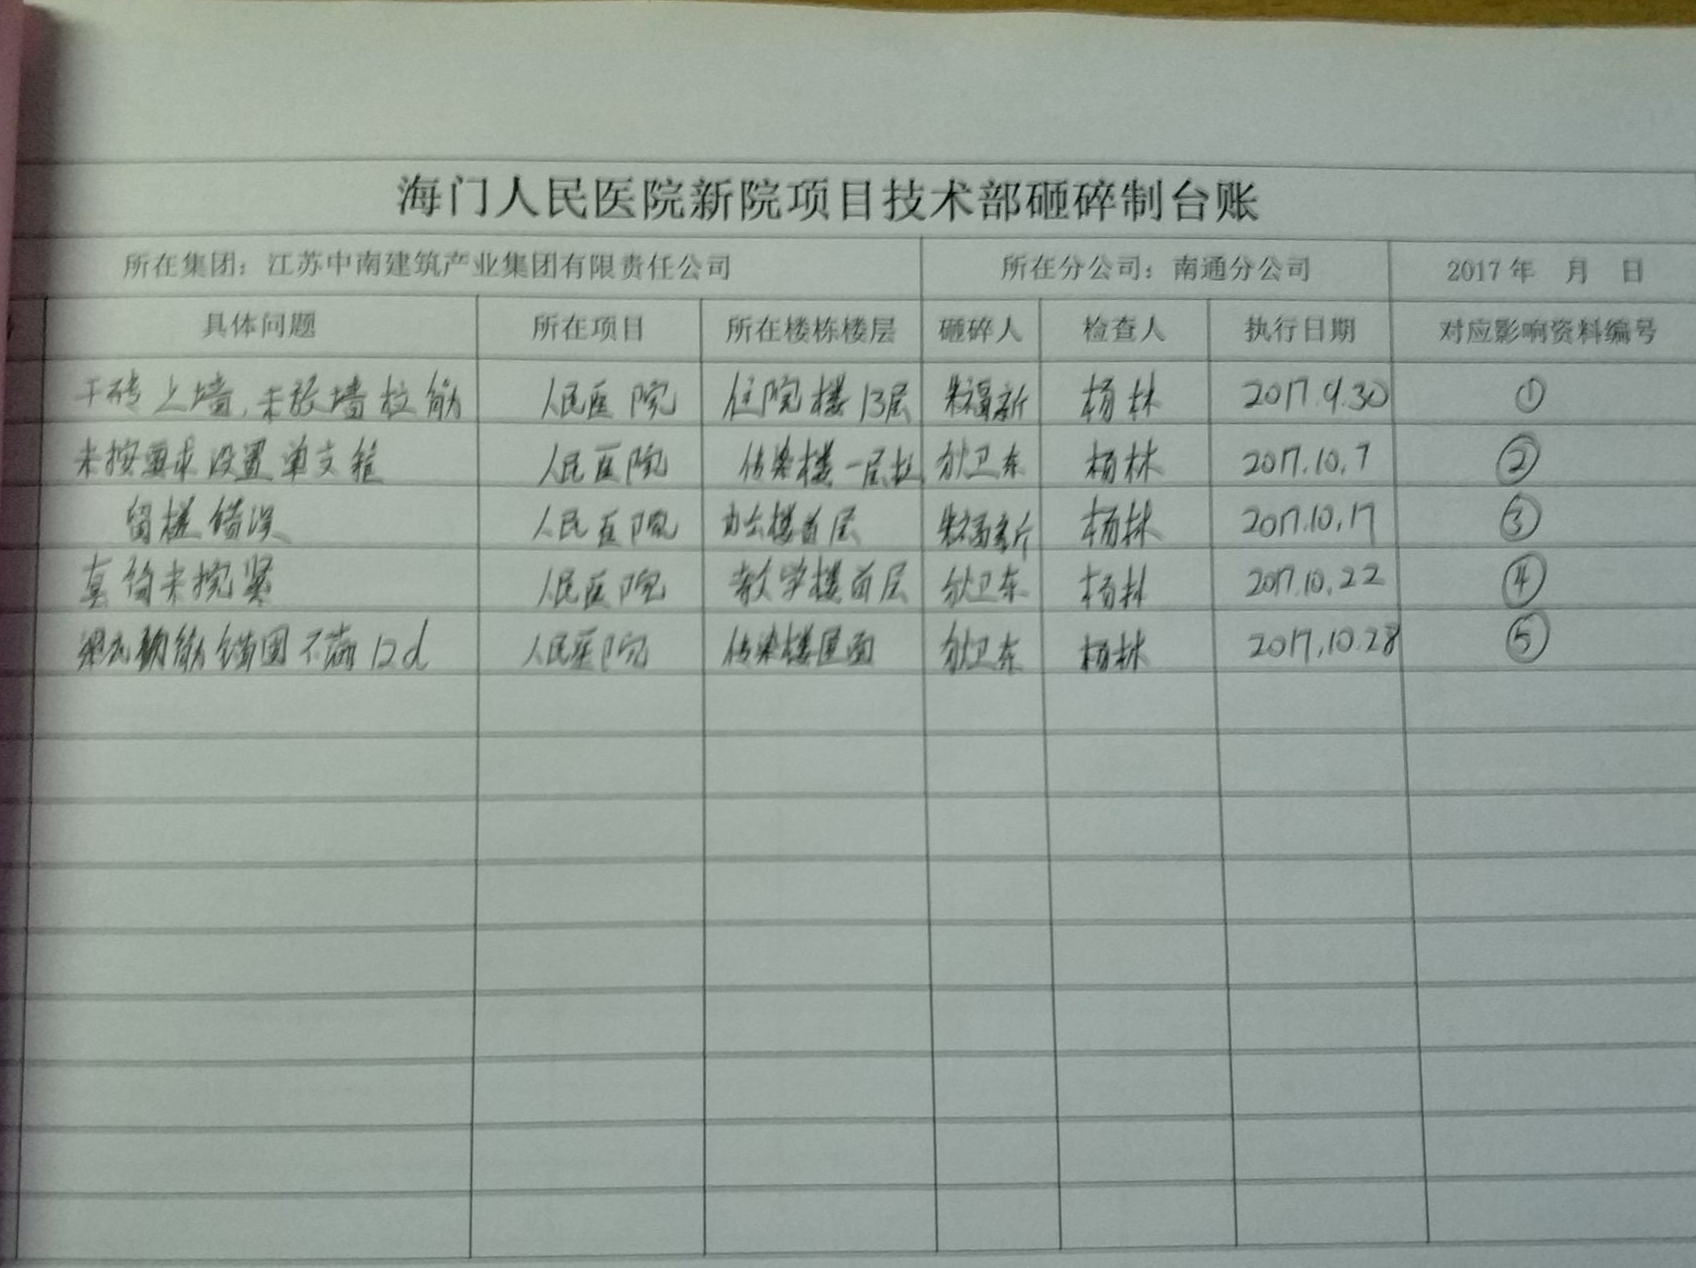 海门人民医院新院项目技术部砸碎制台账
所在集团：江苏中南建筑产业集团有限责任公司 所在分公司：南通分公司 2017年 月 日
具体问题 所在项目 所在楼栋楼层 砸碎人 检查人 执行日期 对应影响资料编号
干砖上墙，未设墙拉筋 人民医院 住院楼13层 朱福新 杨林 2017.9.30 ①
未按要求设置单支箍 人民医院 传染楼一层 狄卫东 杨林 2017.10.7 ②
留槎错误 人民医院 办公楼首层 朱福新 杨林 2017.10.17 ③
直 未拧紧 人民医院 教学楼首层 狄卫东 杨林 2017.10.22 ④
梁 钢筋锚固不满12d 人民医院 传染楼屋面 狄卫东 杨林 2017.10.28 ⑤